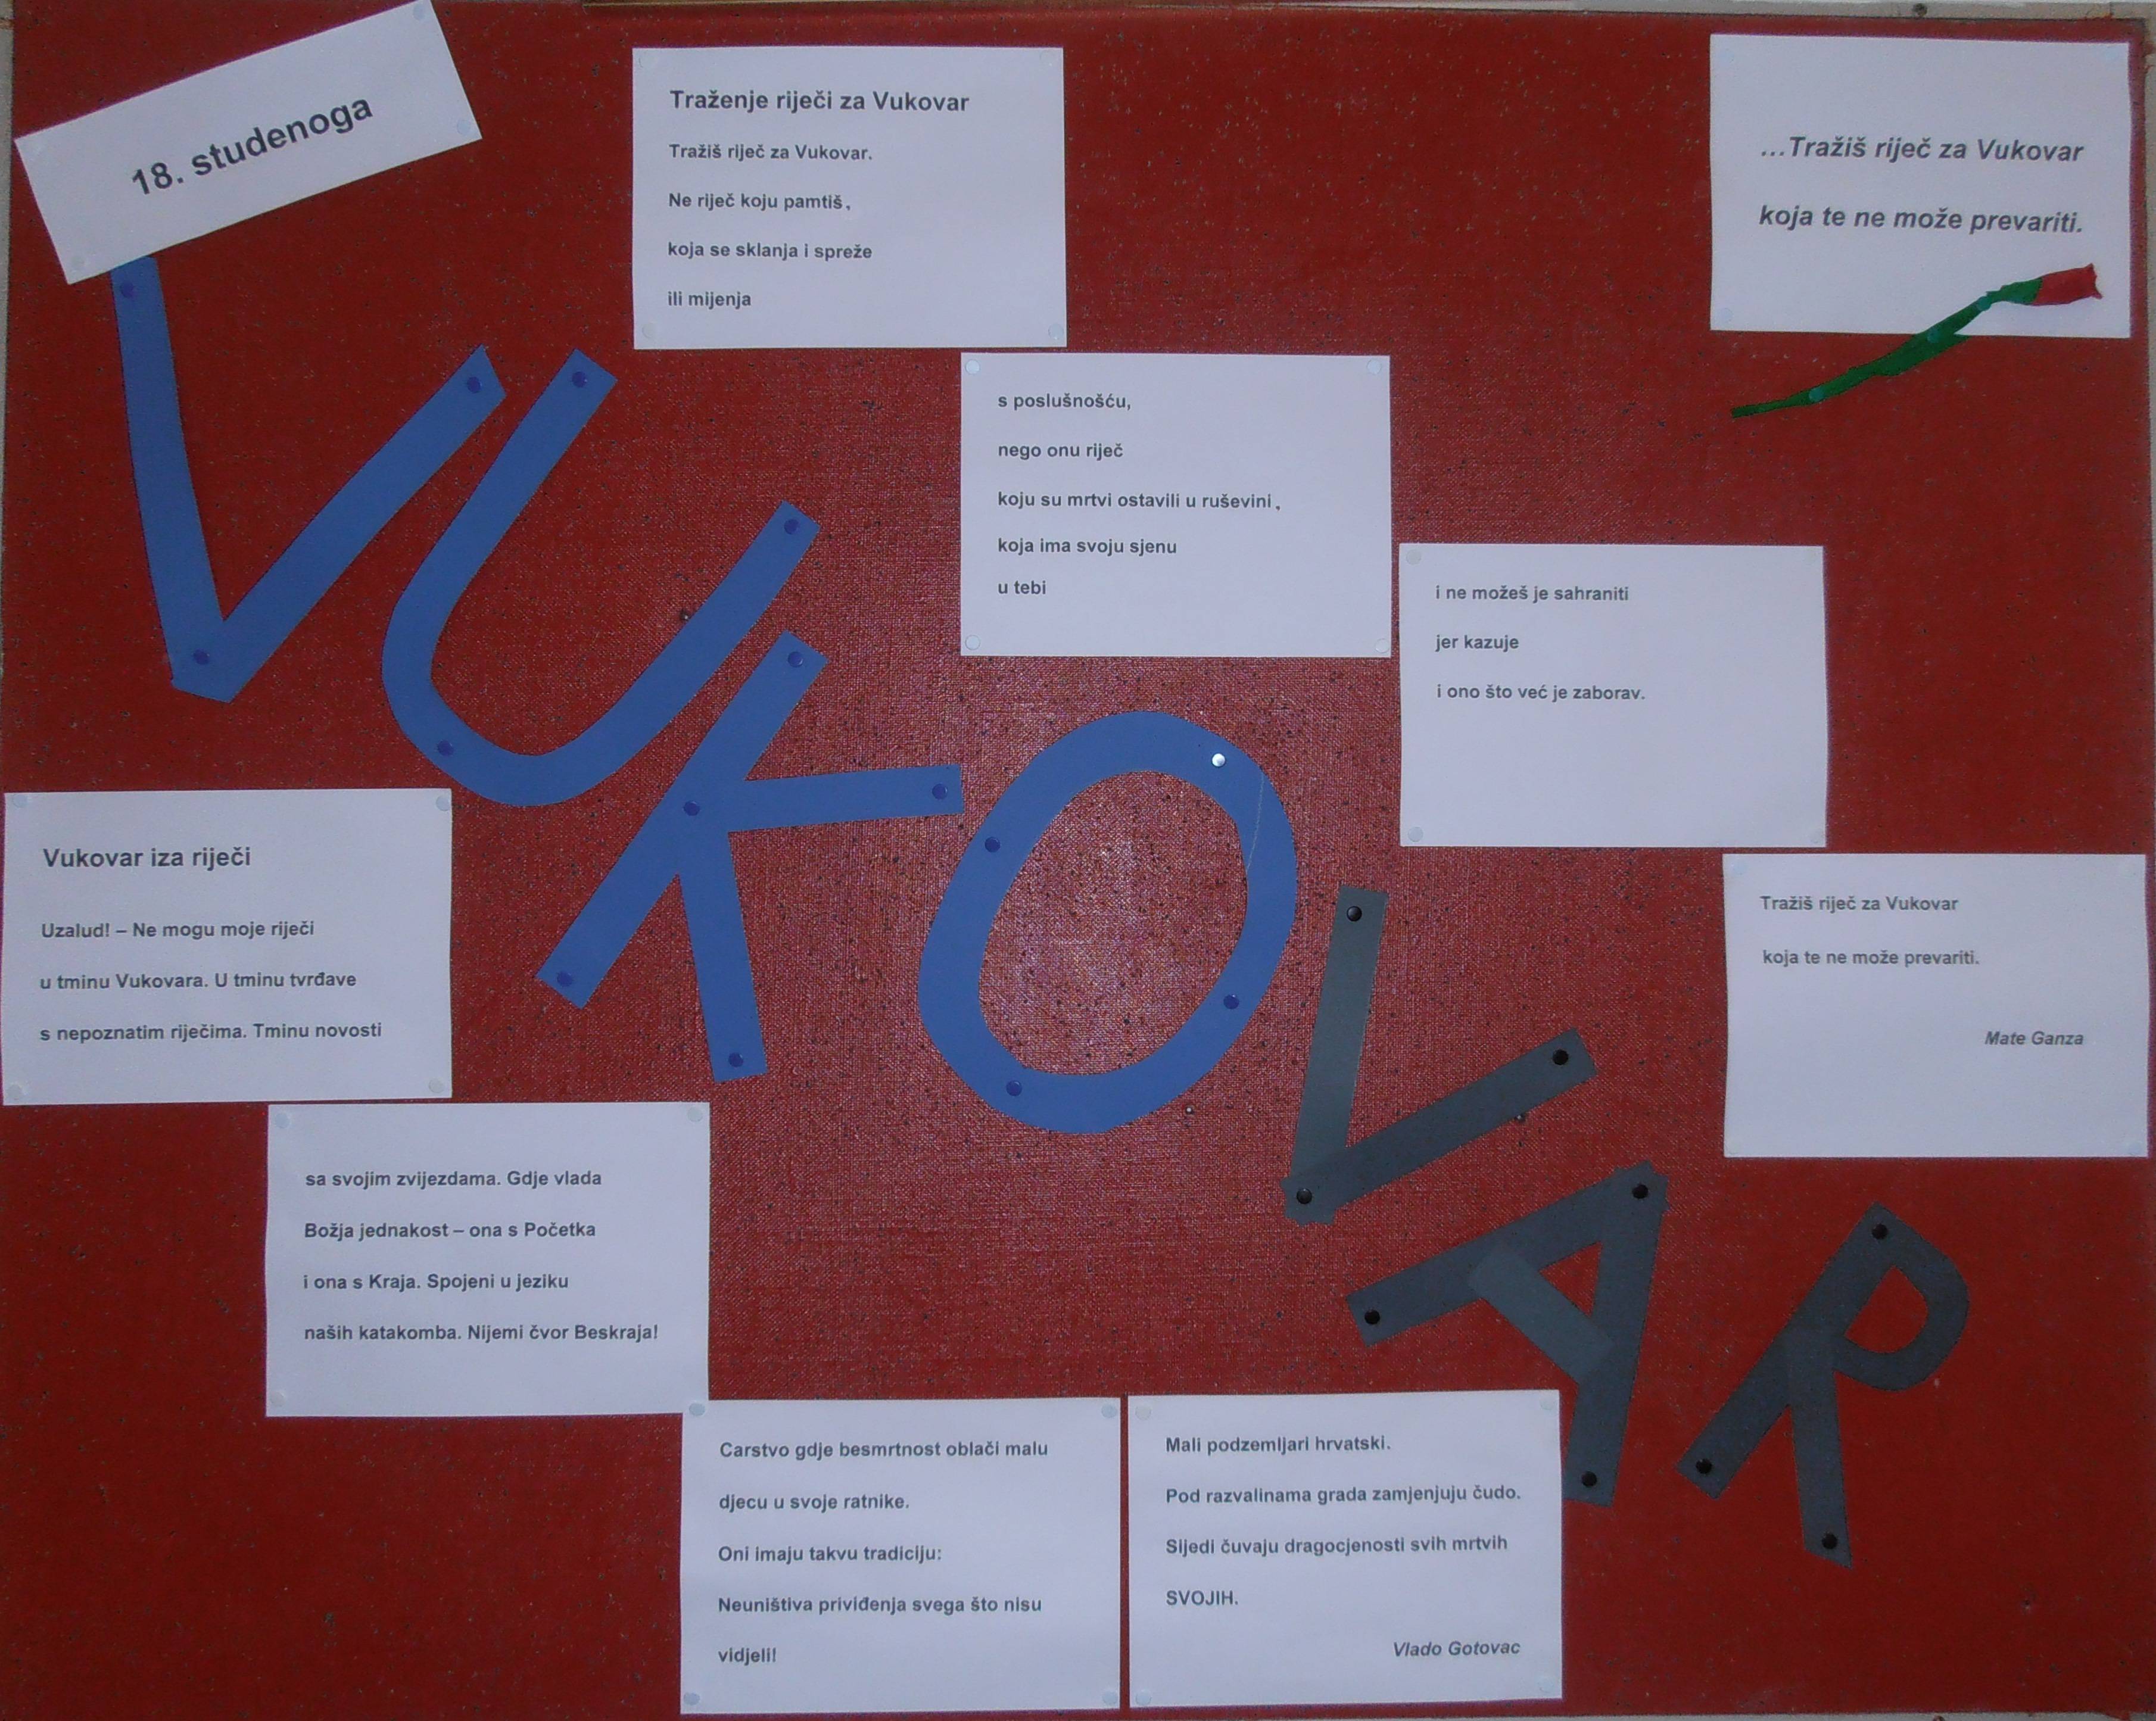 18. studenoga
VUKOVAR
Traženje riječi za Vukovar
Tražiš riječ za Vukovar.
Ne riječ koju pamtiš,
koja se sklanja i spreže
ili mijenja
s poslušnošću,
nego onu riječ
koju su mrtvi ostavili u ruševini,
koja ima svoju sjenu
u tebi
i ne možeš je sahraniti
jer kazuje
i ono što već je zaborav.
Tražiš riječ za Vukovar
koja te ne može prevariti.
Mate Ganza
...Tražiš riječ za Vukovar
koja te ne može prevariti.
Vukovar iza riječi
Uzalud! – Ne mogu moje riječi
u tminu Vukovara. U tminu tvrđave
s nepoznatim riječima. Tminu novosti
sa svojim zvijezdama. Gdje vlada
Božja jednakost – ona s Početka
i ona s Kraja. Spojeni u jeziku
naših katakomba. Nijemi čvor Beskraja!
Carstvo gdje besmrtnost oblači malu
djecu u svoje ratnike.
Oni imaju takvu tradiciju:
Neuništiva priviđenja svega što nisu
vidjeli!
Mali podzemljari hrvatski.
Pod razvalinama grada zamjenjuju čudo.
Sijedi čuvaju dragocjenosti svih mrtvih
SVOJIH.
Vlado Gotovac